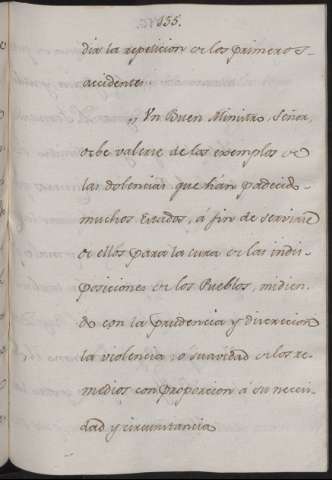 155.
dir la repeticion de los primeros
accidentes.
„ Un Buen Ministro, Señor,
debe valerse de los exemplos de
las dolencias que han padecido
muchos Estados, á fin de servirse
de ellos para la cura de las indis-
posiciones de los Pueblos, midien-
do con la prudencia y discrecion
la violencia ó suavidad de los re-
medios con proporcion á su neces-
dad y circunstancia